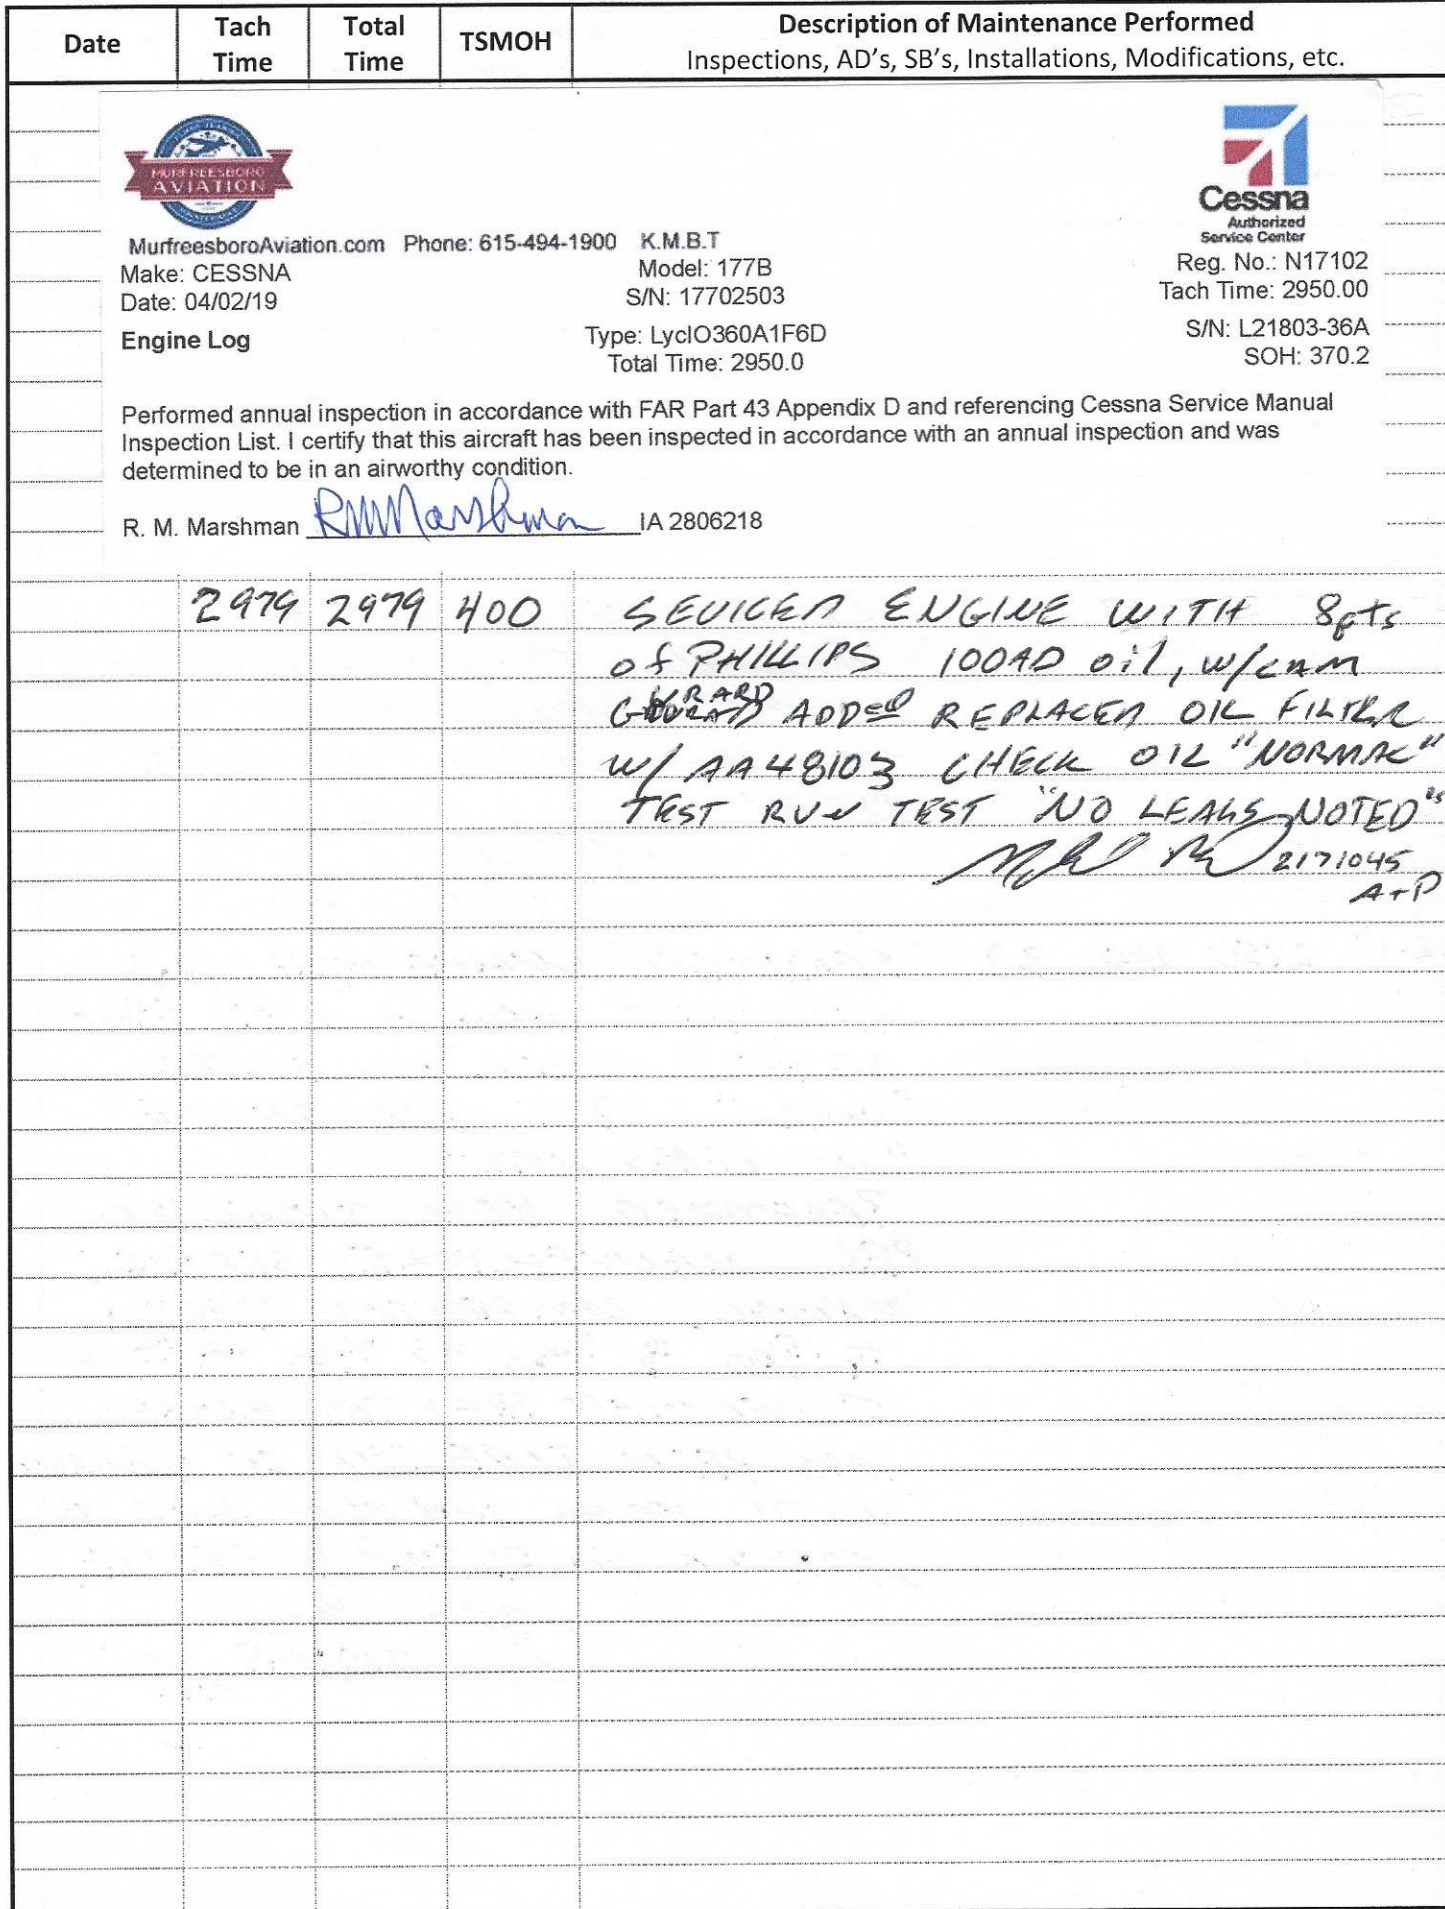 Date Tach Time Total Time TSMOH Description of Maintenance Performed
Inspections, AD's, SB's, Installations, Modifications, etc.
MURFREESBORO
AVIATION
Cessna
Authorized
Service Center
MurfreesboroAviation.com Phone: 615-494-1900 K.M.B.T
Make: CESSNA Model: 177B Reg. No.: N17102
Date: 04/02/19 S/N: 17702503 Tach Time: 2950.00
Engine Log Type: LycIO360A1F6D S/N: L21803-36A
Total Time: 2950.0 SOH: 370.2
Performed annual inspection in accordance with FAR Part 43 Appendix D and referencing Cessna Service Manual
Inspection List. I certify that this aircraft has been inspected in accordance with an annual inspection and was
determined to be in an airworthy condition.
R. M. Marshman RMMarshman IA 2806218
2979 2979 400 SEVICED ENGINE WITH 8qts
of PHILLIPS 100AD oil, w/cam
GUARD ADDED REPLACED OIL FILTER
W/ AA48103 CHECK OIL "NORMAL"
TEST RUN TEST "NO LEAKS NOTED"
2171045
A+P